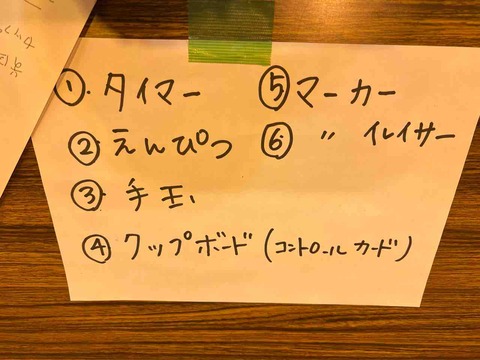 ① タイマー
② えんぴつ
③ 手玉
④ クップボード(コントロールカード)
⑤ マーカー
⑥ 〃 イレイサー